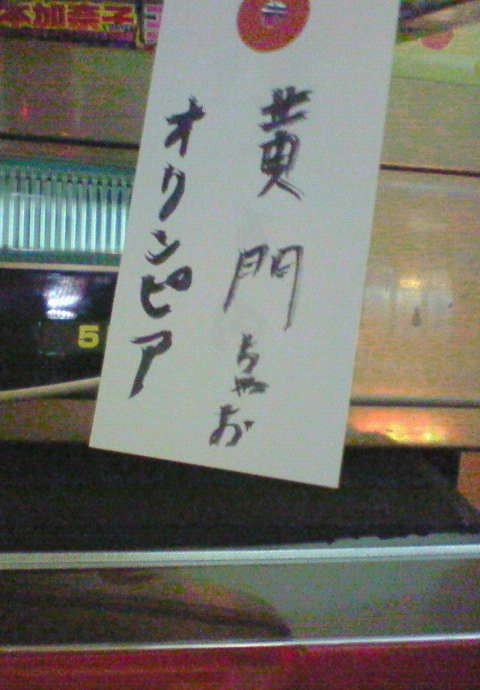 本加奈子
黄門ちゃお
オリンピア
5